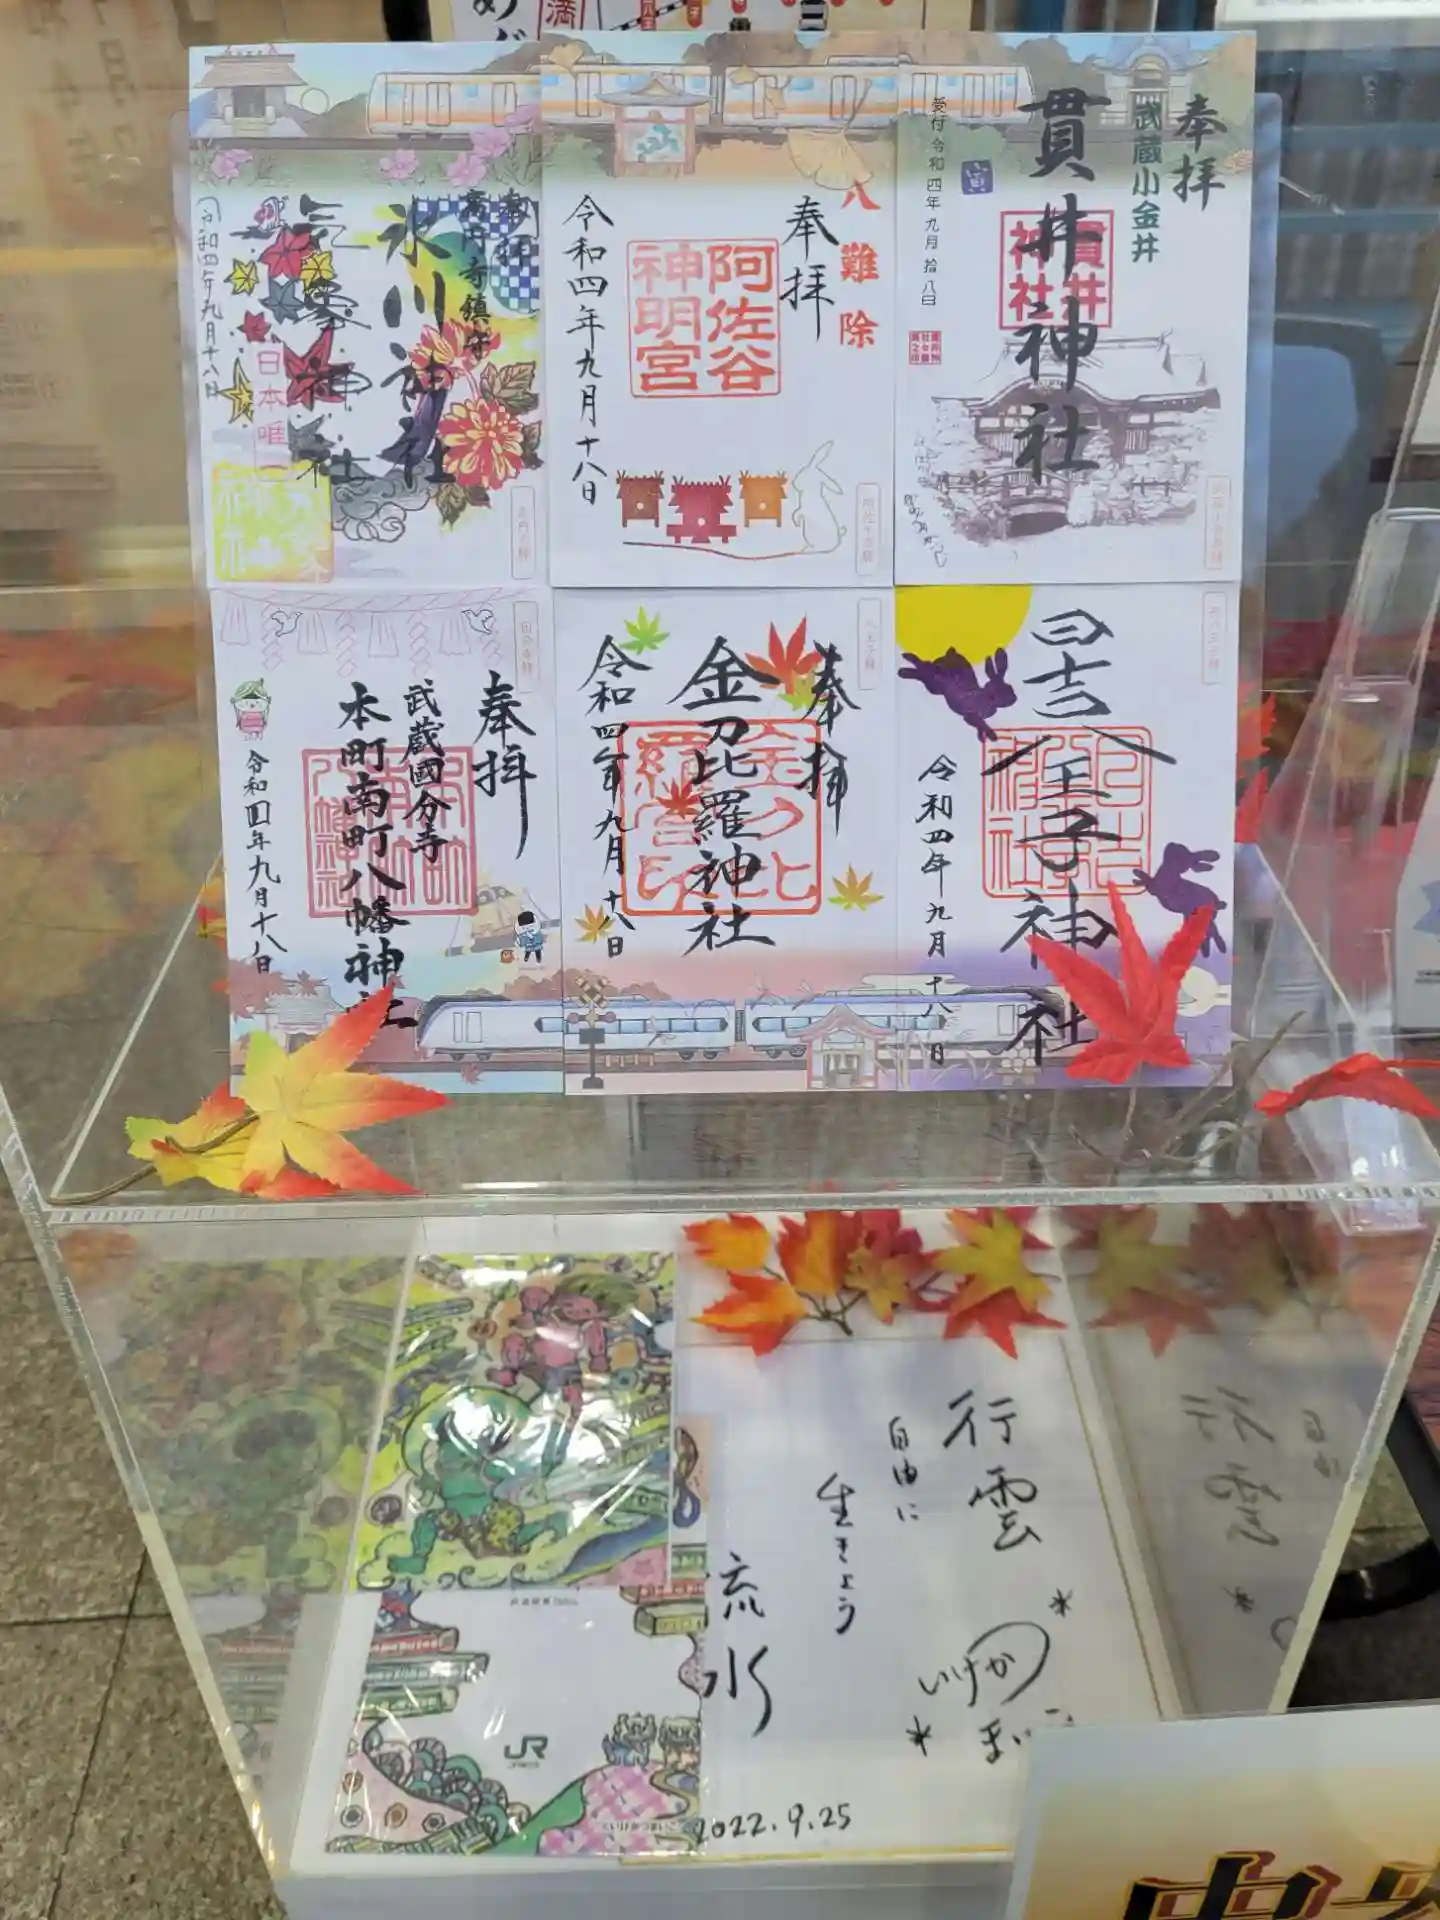 奉拝
高円寺鎮守
氷川神社
気象神社
令和四年九月十八日
日本唯一
八難除
奉拝
阿佐谷
神明宮
令和四年九月十八日
奉拝
武蔵小金井
貫井神社
貫井
神社
受付令和四年九月拾八日
奉拝
武蔵國分寺
本町南町八幡神社
令和四年九月十八日
奉拝
金刀比羅神社
令和四年九月十八日
日吉八王子神社
令和四年九月十八日
行雲
自由に
生きよう
流水
いけが
2022.9.25
JR
中央